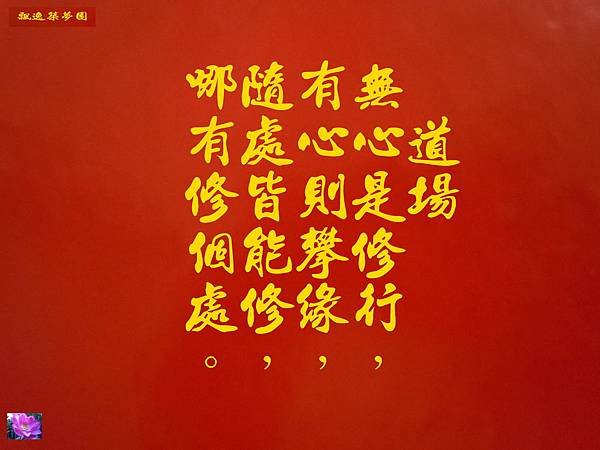 飄逸築夢園
道場
無心是修行，
有心則攀緣，
隨處皆能修，
哪有修個處。